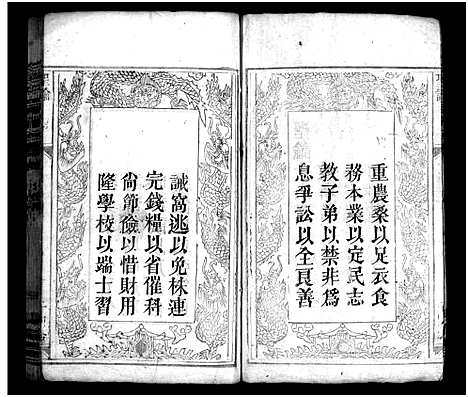 重農桑以足衣食
務本業以定民志
教子弟以禁非爲
息爭訟以全良善
誡窩逃以免株連
完錢糧以省催科
尙節儉以惜財用
隆學校以端士習